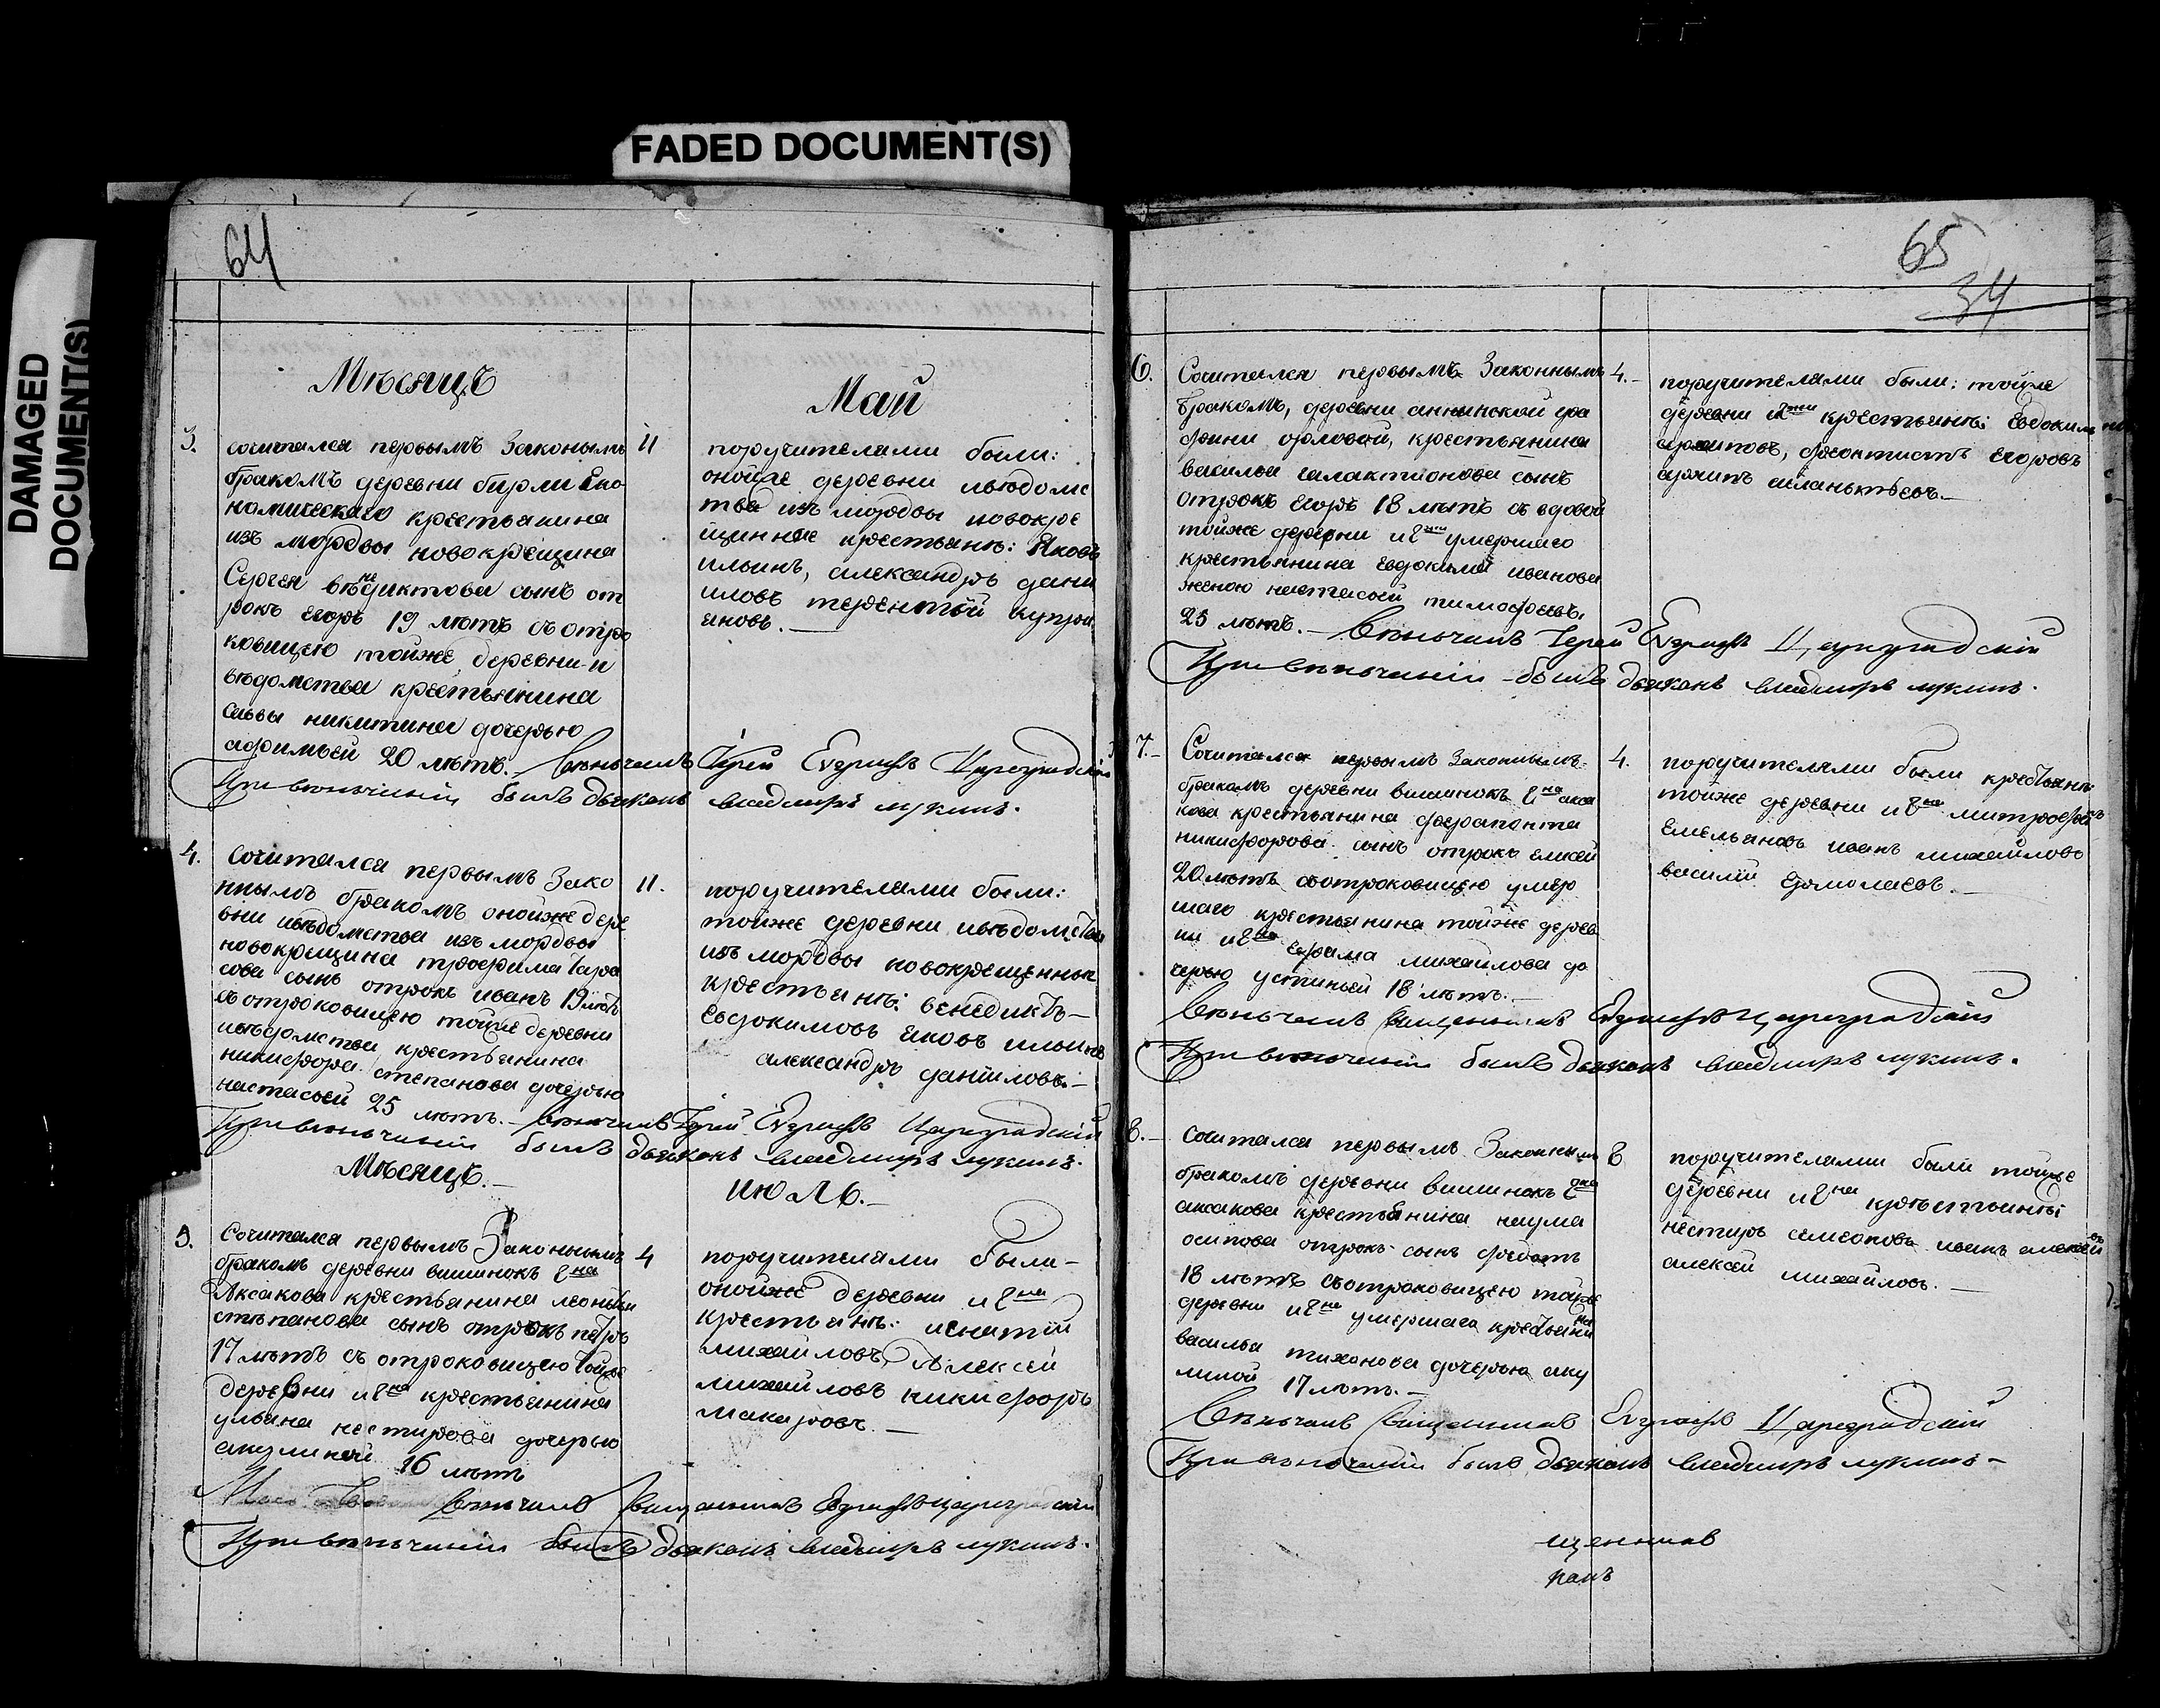 FADED DOCUMENT(S)
DAMAGED
DOCUMENT(S)
64
Мѣсяцъ
Май
3.
сочитался первымъ Законымъ
бракомъ деревни бирли Еко
намическаго крестьянина
изъ мордвы новокрещина
Сергея венедиктова сынъ от
рокъ егоръ 19 лѣтъ съ отро
ковицею тойже деревни и
вѣдомства крестьянина
савы никитина дочерью
афимьей 20 лѣтъ. Вѣньчалъ Іерей Евграфъ Цареградскій
При вѣньчаніи былъ дьяконъ владимиръ лукинъ.
11
поручителями были:
онойже деревни ивѣдомс
тва изъ мордвы новокре
щинные крестьянѣ: Яковъ
ильинъ, александръ дани
иловъ терентей купри
яновъ.
4.
сочитался первымъ Зако
ннымъ бракомъ онойже дере
вни ивѣдомства изъ мордвы
новокрещина трофима тара
сова сынъ отрокъ иванъ 19 лѣтъ
съ отроковицею тойже деревни
ивѣдомства крестьянина
никифора степанова дочерью
настасьей 25 лѣтъ. Вѣньчалъ Іерей Евграфъ Цареградскій
При вѣньчаніи былъ дьяконъ владимиръ лукинъ.
11.
поручителями были:
тойже деревни ивѣдомства
изъ мордвы новокрещенныя
крестьянѣ: венедиктъ
евдокимовъ яковъ ильинъ
александръ даниловъ.
Мѣсяцъ.
июль.
5.
Сочитался первымъ Законнымъ
бракомъ деревни вишинокъ Гна
Аксакова крестьянина леонтья
степанова сынъ отрокъ петръ
17 лѣтъ съ отроковицею тойже
деревни и Гна крестьянина
ульяна нестирова дочерью
акулиной 16 лѣтъ
вѣньчалъ священникъ Евграфъ Цареградскій
При вѣньчаніи былъ дьяконъ владимиръ лукинъ.
4
поручителями были
онойже деревни и Гна
крестьянѣ: игнатій
михайловъ, Алексей
михайловъ никифоръ
макаровъ.
65
34
6.
Сочитался первымъ Законнымъ
бракомъ, деревни аннинской гра
фини орловой, крестьянина
василья галактионова сынъ
отрокъ егоръ 18 лѣтъ съ вдовой
тойже деревни и Гжи умершаго
крестьянина евдокима иванова
женою настасьей тимофеевъ.
25 лѣтъ. Вѣньчалъ Іерей Евграфъ Цареградскій
При вѣньчаніи былъ дьяконъ владимиръ лукинъ.
4.
поручителями были: тойже
деревни и Гжи крестьянѣ: Евдокимъ
архиповъ, феонтистъ егоровъ
архипъ
7.
Сочитался первымъ Законнымъ
бракомъ деревни вишинокъ Гна акса
кова крестьянина ферапонта
никифорова сынъ отрокъ елисей
20 лѣтъ съотроковицею умер
шаго крестьянина тойже дерев
ни и Гна ефима михайлова до
черью устиньей 18 лѣтъ.
Вѣньчалъ священникъ Евграфъ Цареградскій
При вѣньчаніи былъ дьяконъ владимиръ лукинъ.
4.
поручителями были крестьянѣ
тойже деревни и Гна митрофанъ
Емельяновъ иванъ михайловъ
василий ермолаевъ.
8.
Сочитался первымъ Законнымъ
бракомъ деревни вишинокъ Гдна
аксакова крестьянина наума
осипова отрокъ сынъ федотъ
18 лѣтъ съотроковицею тойже
деревни и Гна умершаго крестьянина
василья тихонова дочерью аку
линой 17 лѣтъ.
Вѣньчалъ священникъ Евграфъ Цареградскій
При вѣньчаніи былъ дьяконъ владимиръ лукинъ
8
поручителями были тойже
деревни и Гна крѣстьянѣ
нестиръ семеновъ иванъ алексеевъ
алексей михайловъ.
щенникъ
конъ